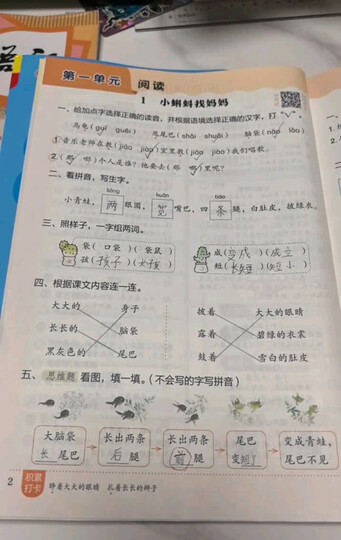 第一单元 阅读
1 小蝌蚪找妈妈
一、给加点字选择正确的读音,并根据语境选择正确的汉字,打“√”。
乌龟(guī guēi) 甩尾巴(shǎi shuǎi) 脑袋(nǎo lǎo)
①音乐老师在教(jiāo jiào)室里教(jiāo jiào)我们唱歌。
②(那 哪)个人是谁?他要去(那 哪)里呢?
二、看拼音,写生字。
liǎng kuān tiáo
小青蛙,两眼圆,宽嘴巴,四条腿,白肚皮,披绿衣。
三、照样子,一字组两词。
袋(口袋)(袋鼠) 成(变成)(成立)
孩(孩子)(女孩) 短(长短)(短小)
四、根据课文内容连一连。
大大的 身子 披着 大大的眼睛
长长的 脑袋 露着 碧绿的衣裳
黑灰色的 尾巴 鼓着 雪白的肚皮
五、思维题 看图,填一填。(不会写的字写拼音)
大脑袋 长出两条 长出两条 尾巴 变成青蛙,
长尾巴 后腿 前腿 变短了 尾巴不见
2 积累打卡 睁着大大的眼睛 扎着长长的辫子